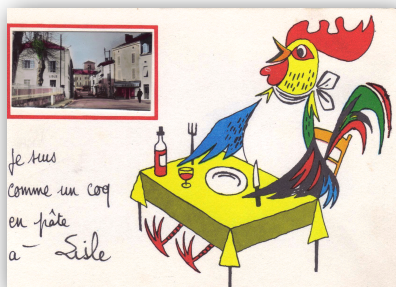 Je suis
comme un coq
en pâte
a - Lisle